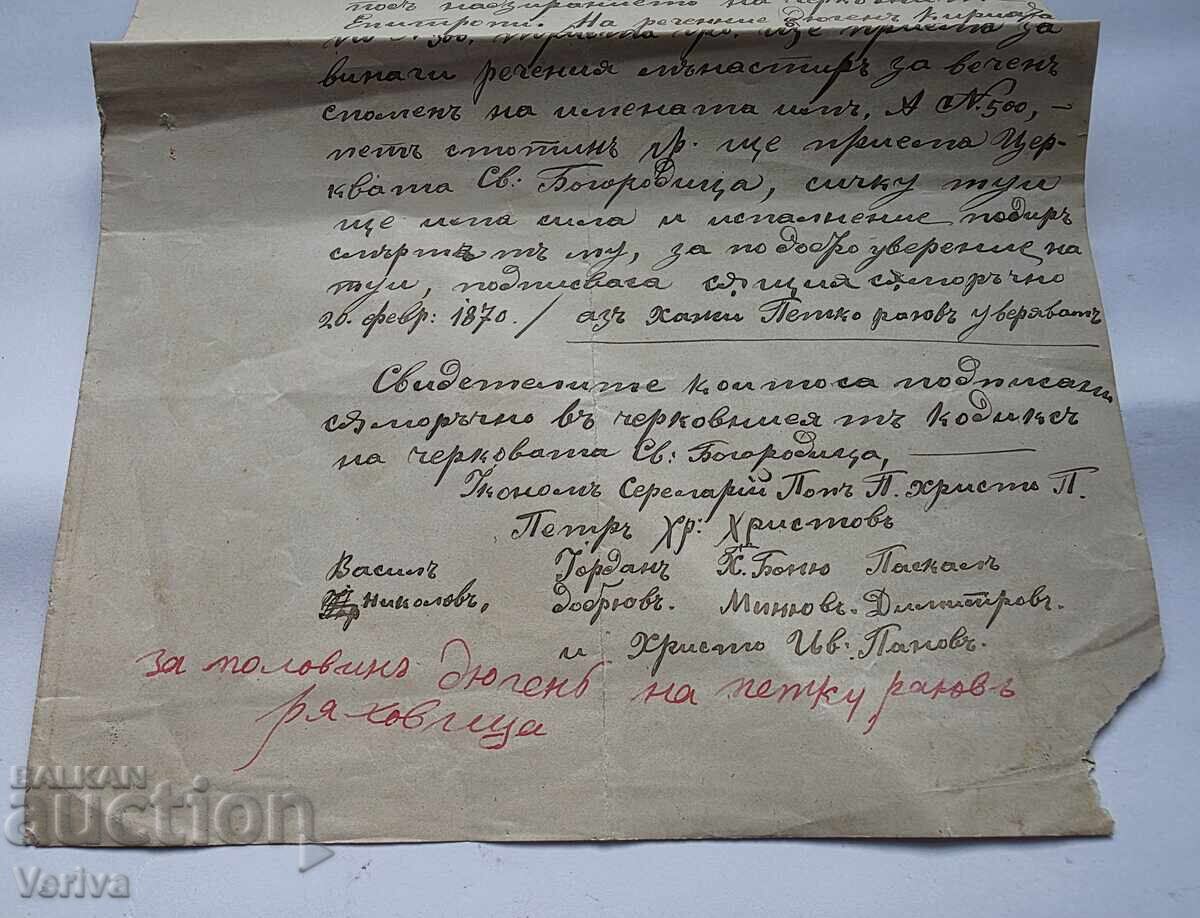 подъ надзиранието на
Епитропи. На речение дюгенъ кирията
No 300. триста гр. ще приема за
винаги речения мънастиръ за веченъ
споменъ на имената имъ, А No. 500, –
петъ стотинъ гр. ще приема Цер-
квата Св: Богородица, сичку туй
ще има сила и испалнение подиръ
смъртътъ му, за по добро уверение на
туй, подписвага сѫщия сѫморъчно
20. февр: 1870. / азъ хажи Петко раювъ уверяватъ
Свидетелите коитоса подписани
сѫморъчно въ черковниеятъ кодиксъ
на черковата Св: Богородица,
Іконолъ Серелларий Попъ П. христо П.
Петръ хр: Христовъ
Василъ Іорданъ Х. Боню Паскалъ
Николовъ, Добрювъ. Минювъ. Димитровъ.
и Христо Ив: Пановъ.
за половинъ дюгенъ на петку раювъ
ряховица
BALKAN
auction
Veriva